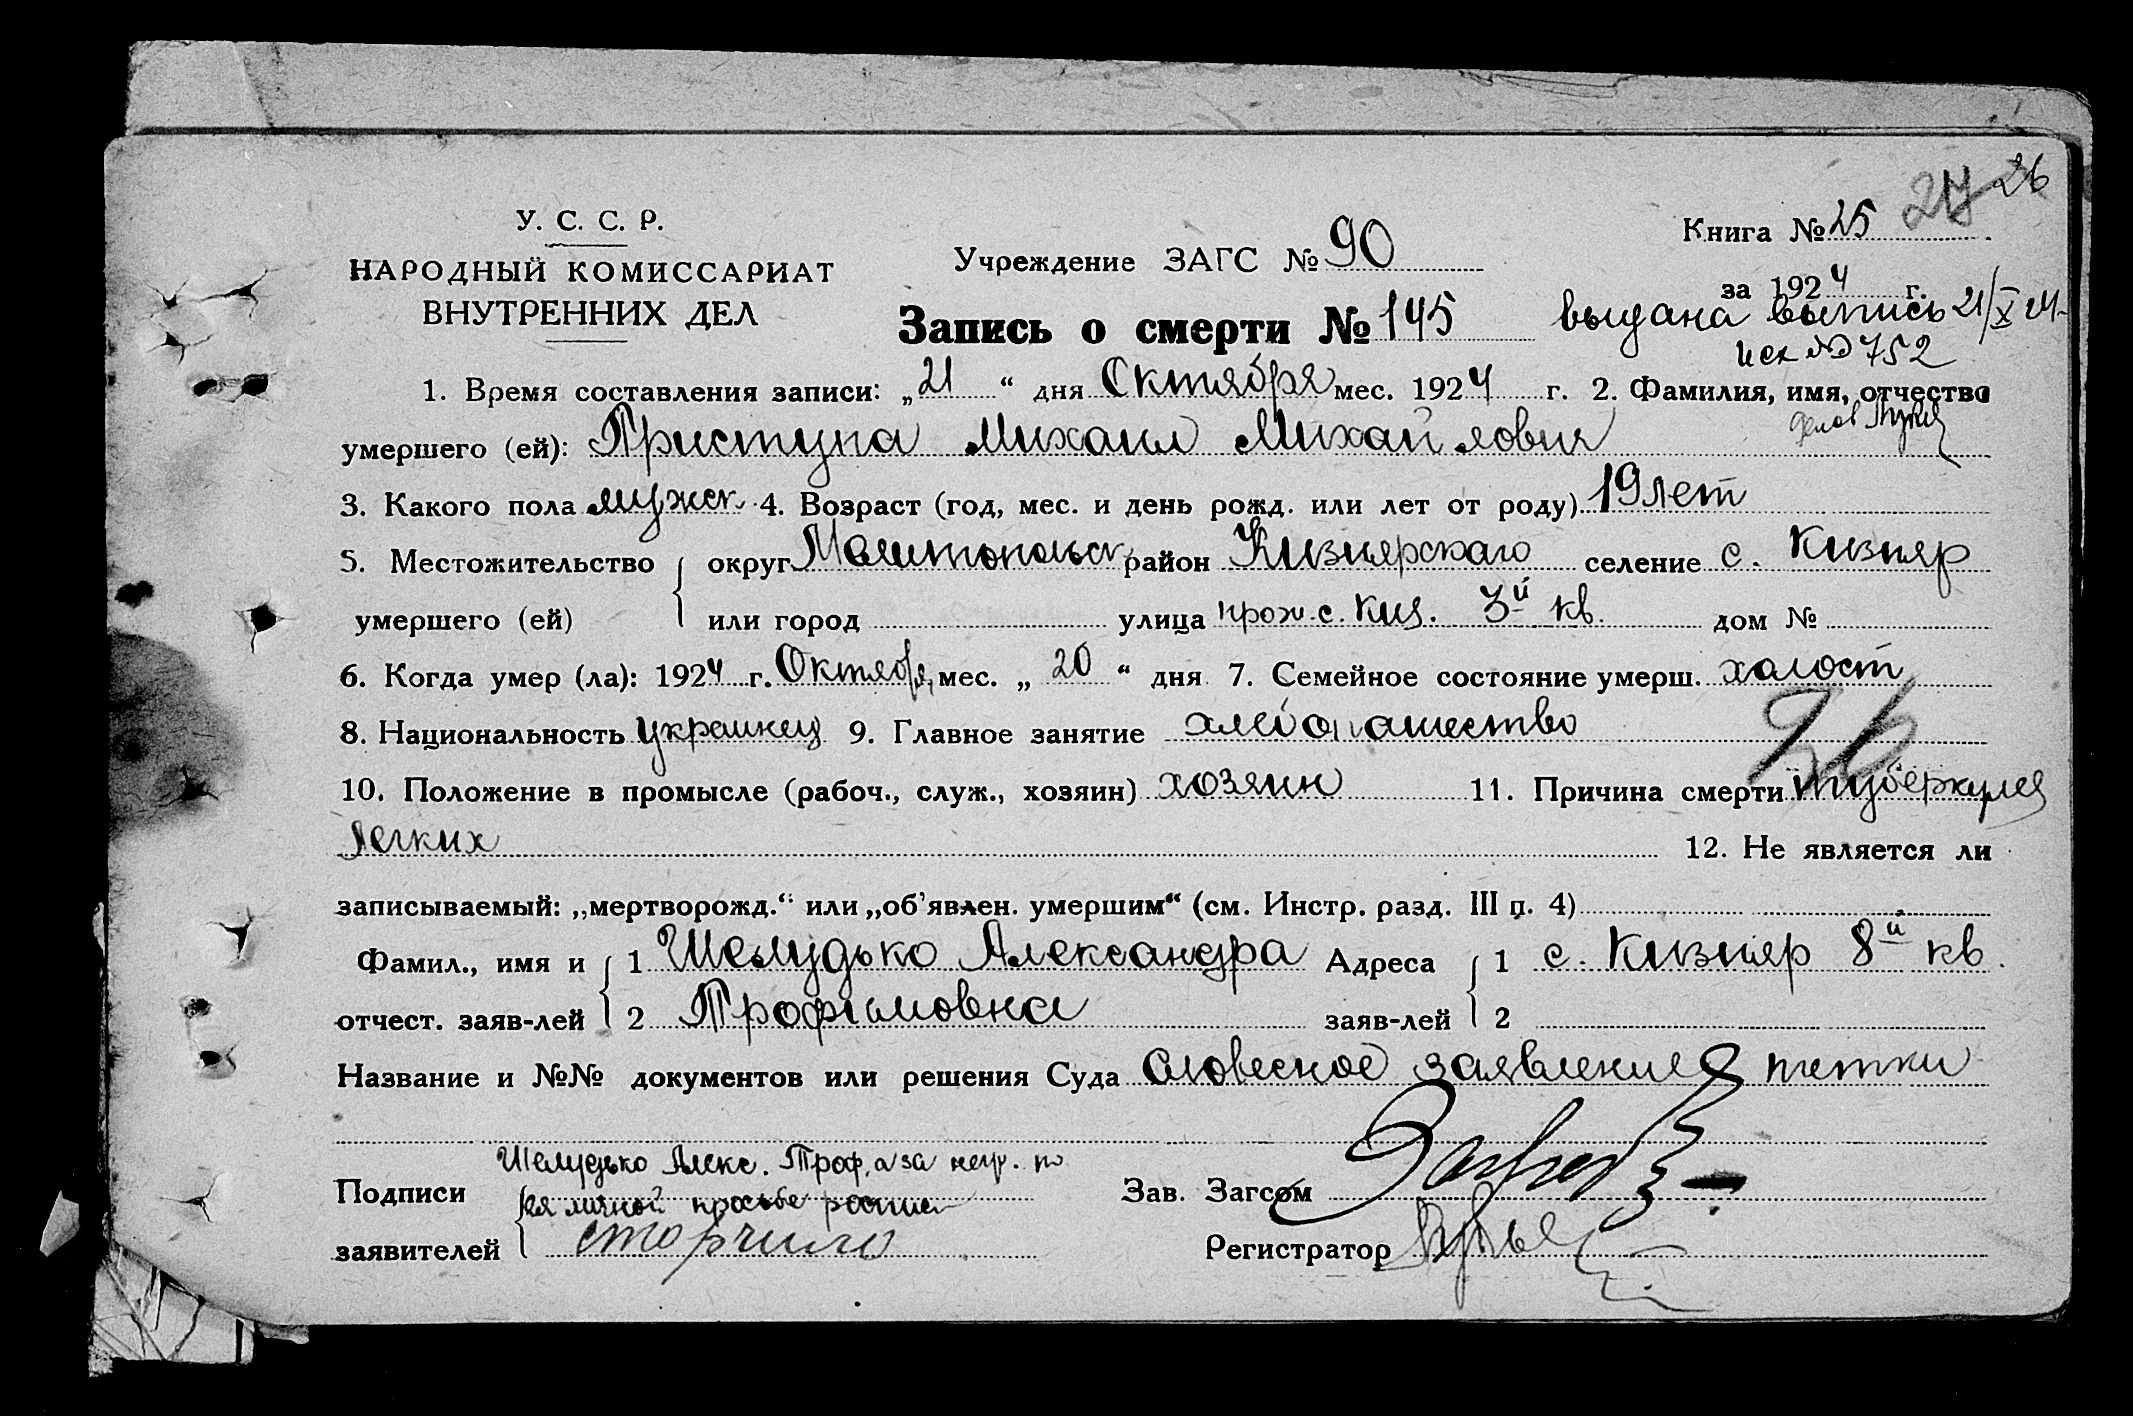 27 26
У. С. С. Р.
НАРОДНЫЙ КОМИССАРИАТ
ВНУТРЕННИХ ДЕЛ
Учреждение ЗАГС № 90
Книга № 25
за 1924 г.
Запись о смерти № 145
выдана выпись 21/X 24
исх № 752
1. Время составления записи: „21“ дня Октября мес. 1924 г. 2. Фамилия, имя, отчество
умершего (ей): Приступа Михаил Михайлович
3. Какого пола мужск. 4. Возраст (год, мес. и день рожд. или лет от роду) 19 лет
5. Местожительство округ Мелитопольск район Кизиярского селение с. Кизияр
умершего (ей) или город улица прож. с. Киз. 3й кв. дом №
6. Когда умер (ла): 1924 г. Октября мес. „20“ дня 7. Семейное состояние умерш. холост
26
8. Национальность украинец 9. Главное занятие хлебопашество
10. Положение в промысле (рабоч., служ., хозяин) хозяин 11. Причина смерти туберкулез
легких 12. Не является ли
записываемый: „мертворожд.“ или „об’явлен. умершим“ (см. Инстр. разд. III п. 4)
Фамил., имя и 1 Шелудько Александра Адреса 1 с. Кизияр 8й кв.
отчест. заяв-лей 2 Трофимовна заяв-лей 2
Название и №№ документов или решения Суда словесное заявление тетки
Шелудько Алекс. Троф, а за негр. по
Подписи ея личной просьбе роспис
Зав. Загсом
заявителей
Регистратор